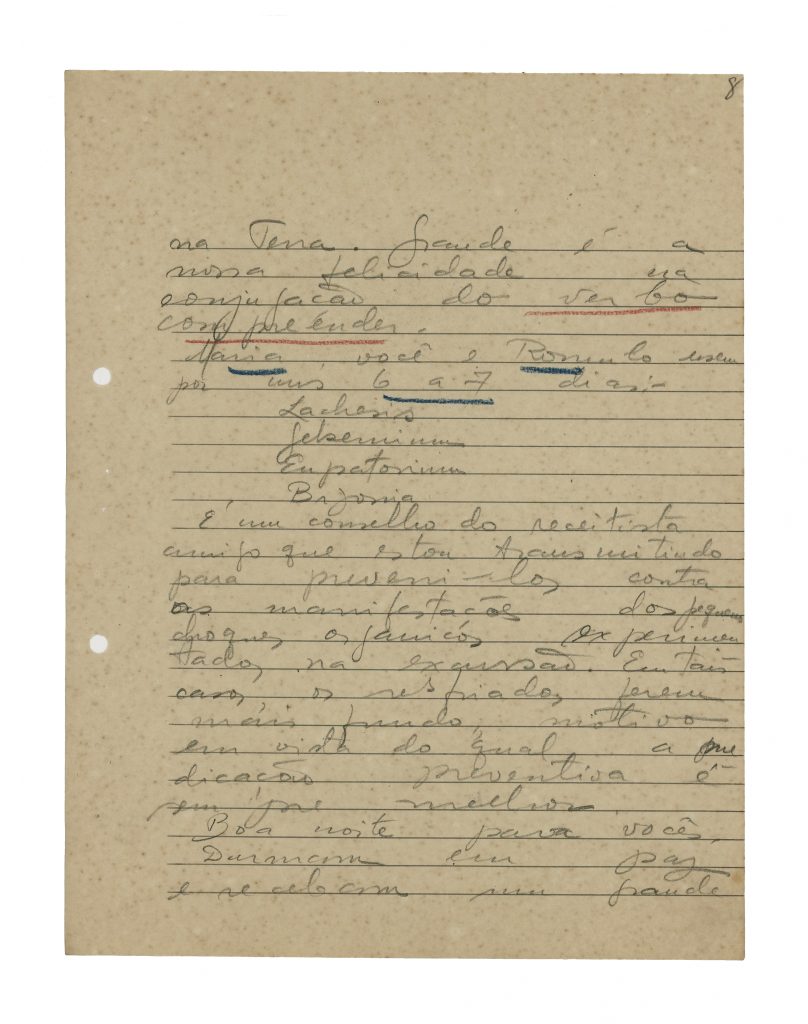 8
na Terra. Grande é a
nossa felicidade na
conjugação do verbo
compreender.
Maria, você e Romulo usem
por uns 6 a 7 dias:-
Lachesis
Gelsemium
Eupatorium
Brionia
É um conselho do receitista
amigo que estou transmitindo
para preveni-los contra
as manifestações dos pequenos
choques organicos experimen
tados na excursão. Em tais
casos, os resfriados ferem
mais fundo, motivo
em vista do qual a me
dicação preventiva é
sempre melhor.
Boa noite para vocês.
Durmam em paz
e recebam um grande